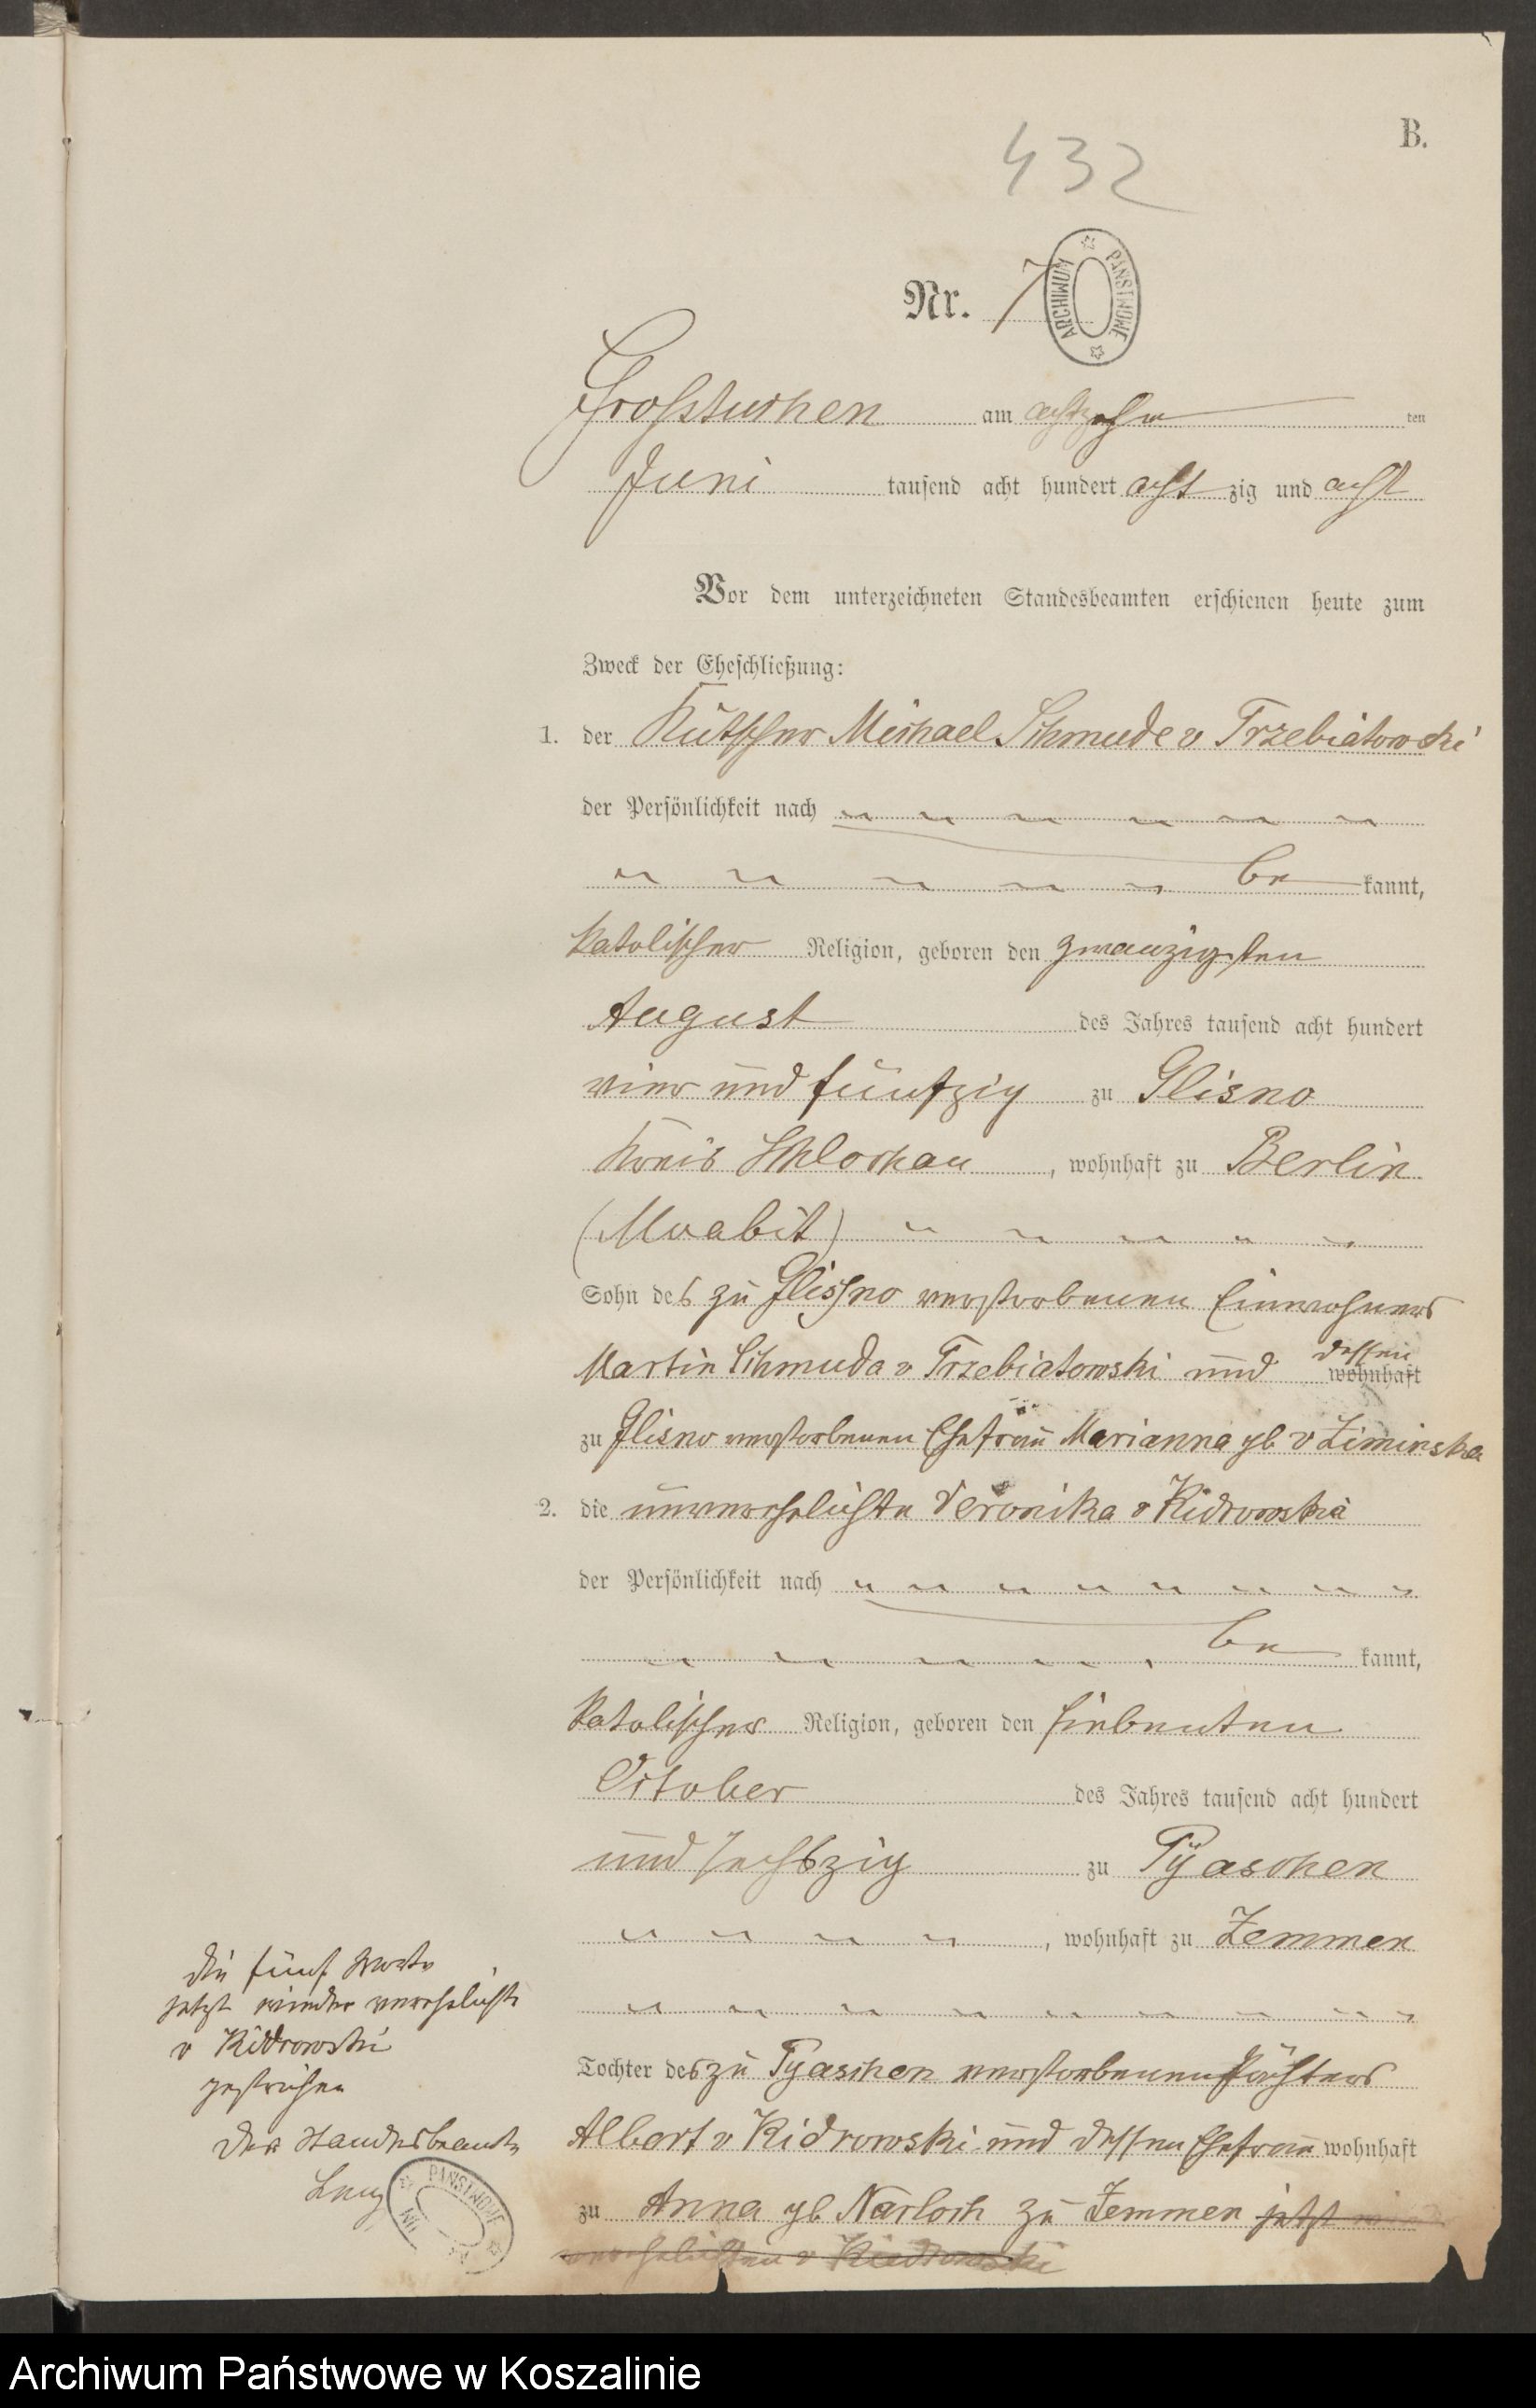 B.
432
Nr. 7
ARCHIWUM PAŃSTWOWE
Großtuchen am achtzehn ten
Juni tausend acht hundert acht zig und acht
Vor dem unterzeichneten Standesbeamten erschienen heute zum
Zweck der Eheschließung:
1. der Kutscher Michael Schmude v Trzebiatowski
der Persönlichkeit nach
be kannt,
katolischer Religion, geboren den zwanzigsten
August des Jahres tausend acht hundert
vier und fünfzig zu Glisno
Kreis Schlochau, wohnhaft zu Berlin
(Moabit)
Sohn des zu Glisno verstorbenen Einwohners
Martin Schmuda v Trzebiatowski und dessen wohnhaft
zu Glisno verstorbenen Ehefrau Marianna gb v Ziminska
2. die unverehelichte Veronika v Kidrowski
der Persönlichkeit nach
be kannt,
katolischer Religion, geboren den siebenten
October des Jahres tausend acht hundert
und sechszig zu Pyaschen
, wohnhaft zu Zemmen
Tochter des zu Pyaschen verstorbenen Pächters
Albert v Kidrowski und dessen Ehefrau wohnhaft
zu Anna gb Narloch zu Zemmen jetzt wieder
verehelichten v Kiedrowski
Die fünf Worte
jetzt wieder verehelichte
v Kiedrowski
gestrichen
Der Standesbeamte
PAŃSTWOWE
Archiwum Państwowe w Koszalinie